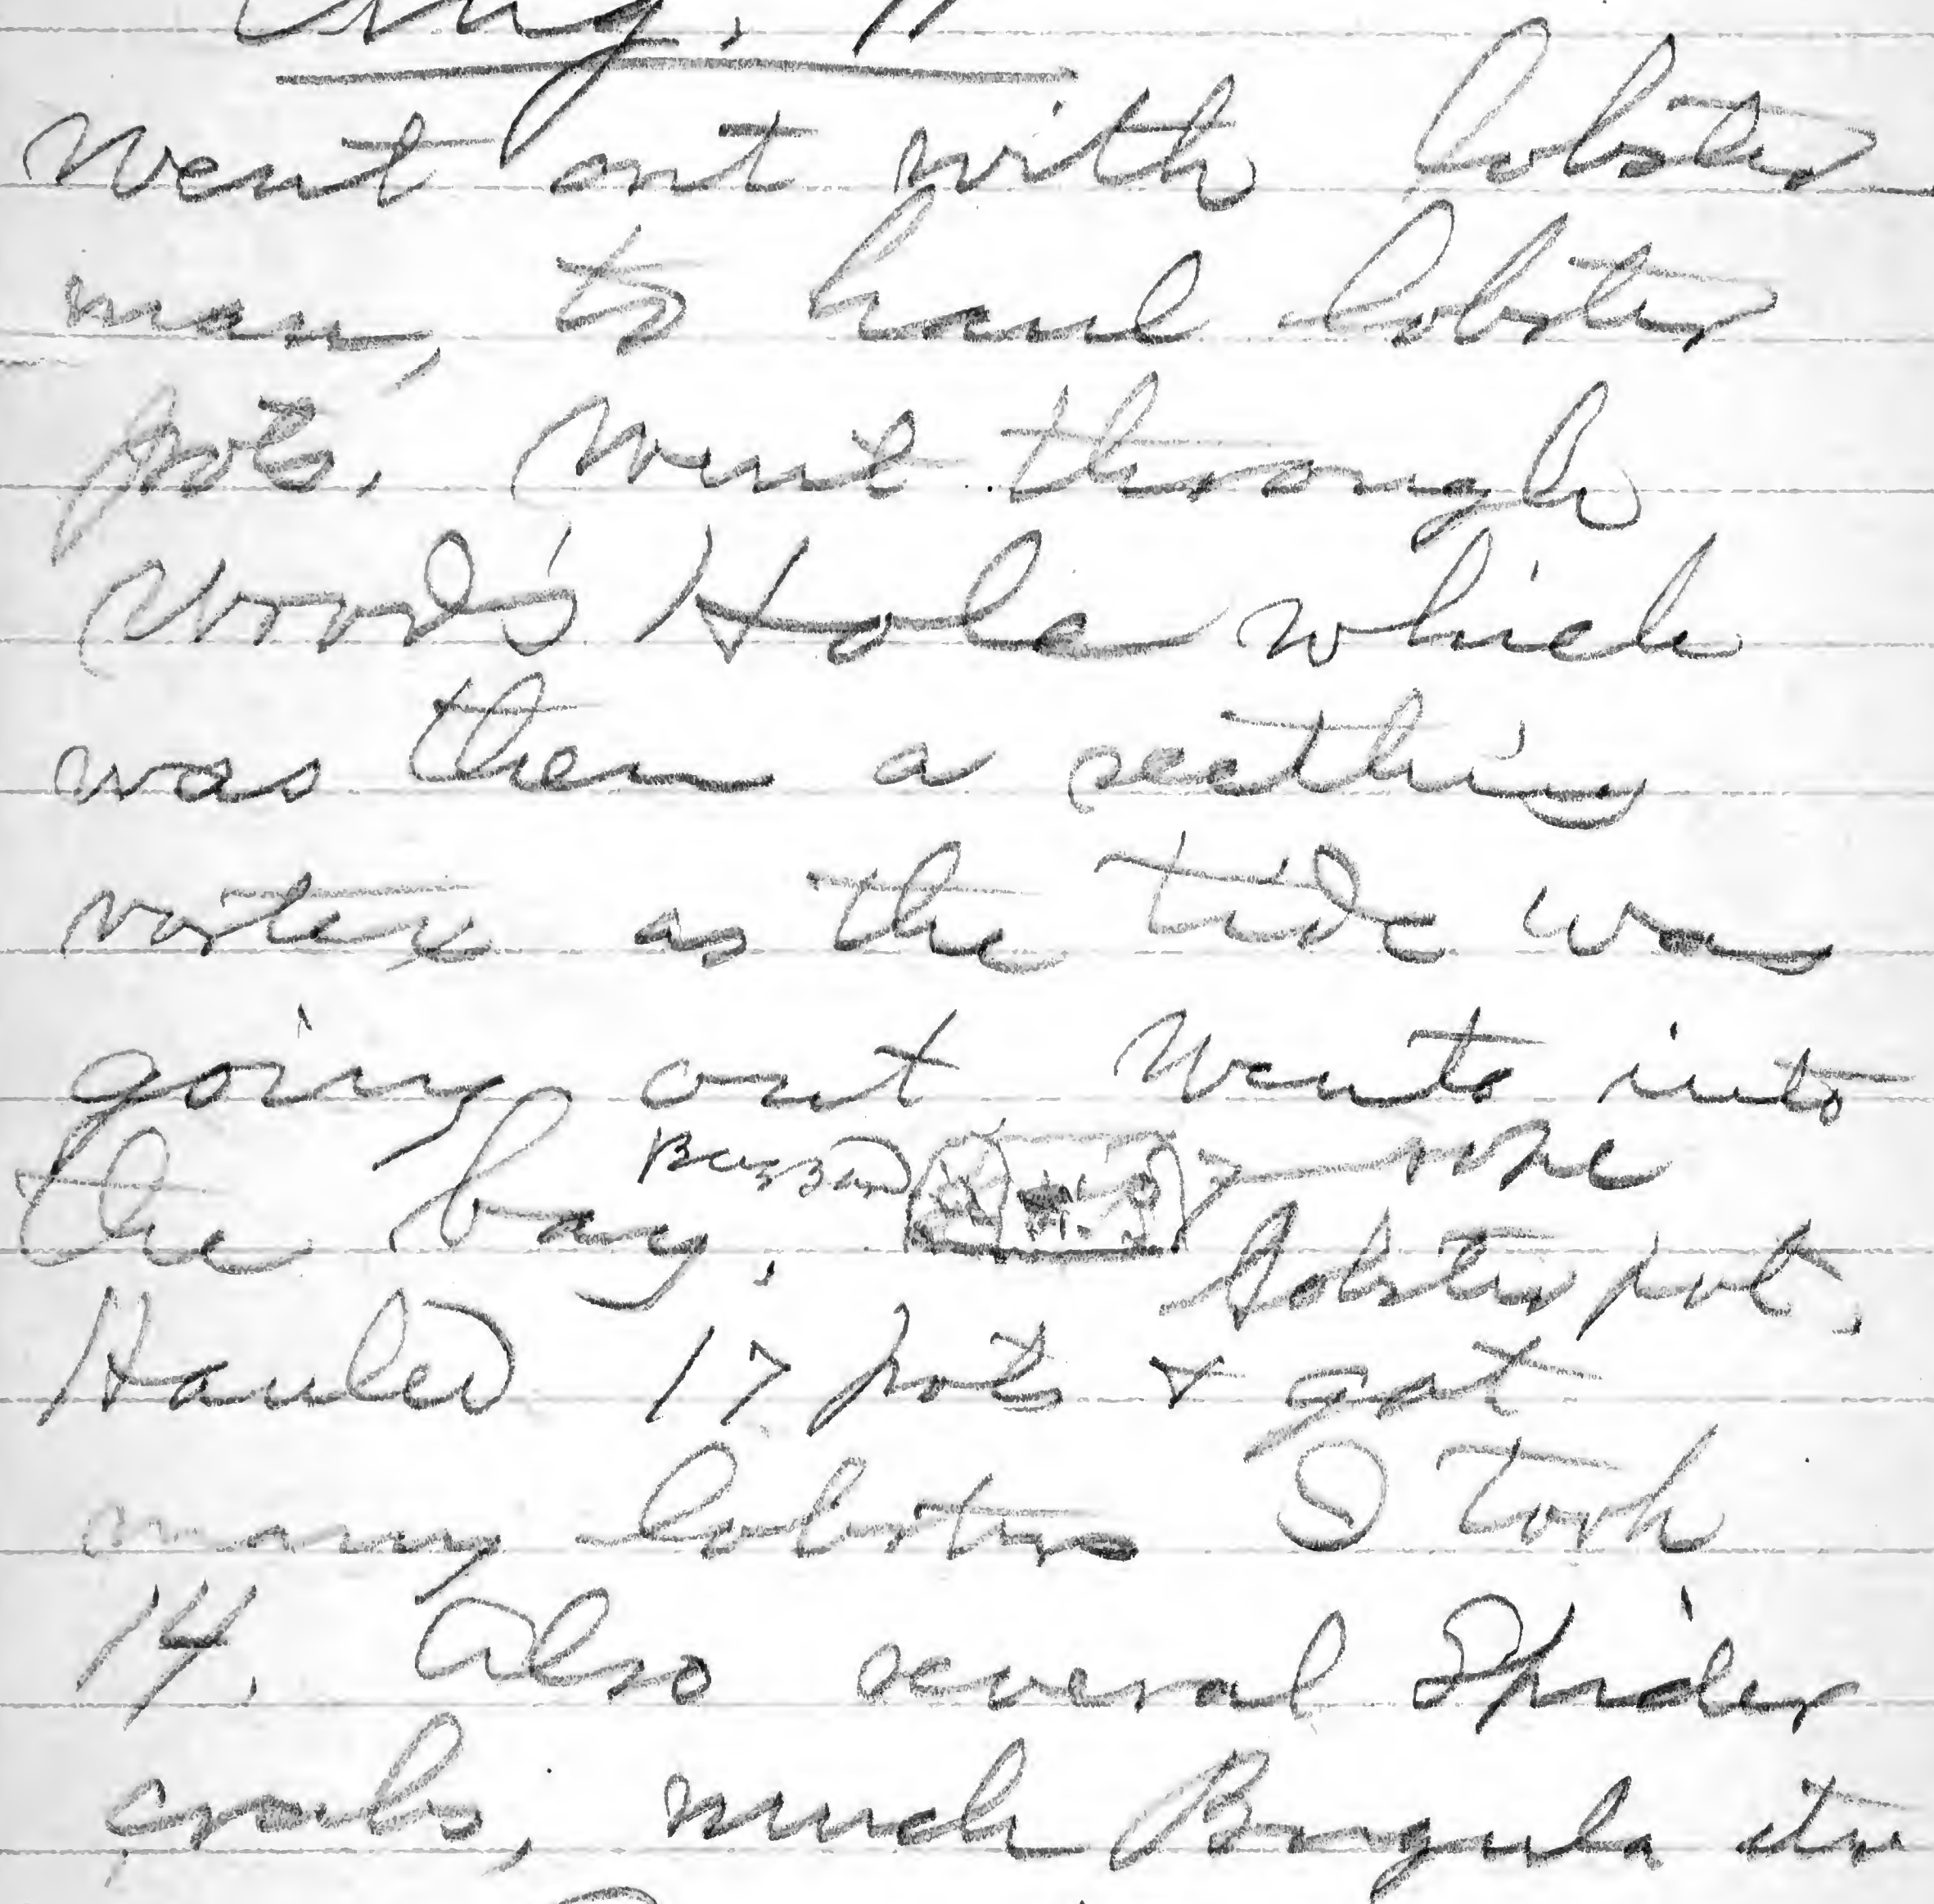 Aug. 11
Went out with lobster
man, to haul lobster
pots. Went through
Wood's Hole which
was then a seething
vortex as the tide was
going out Went into
the bay, Buzzard rope
lobster pot.
Hauled 17 pots & got
many lobsters I took
14. Also several Spider
crabs, much Bugula etc